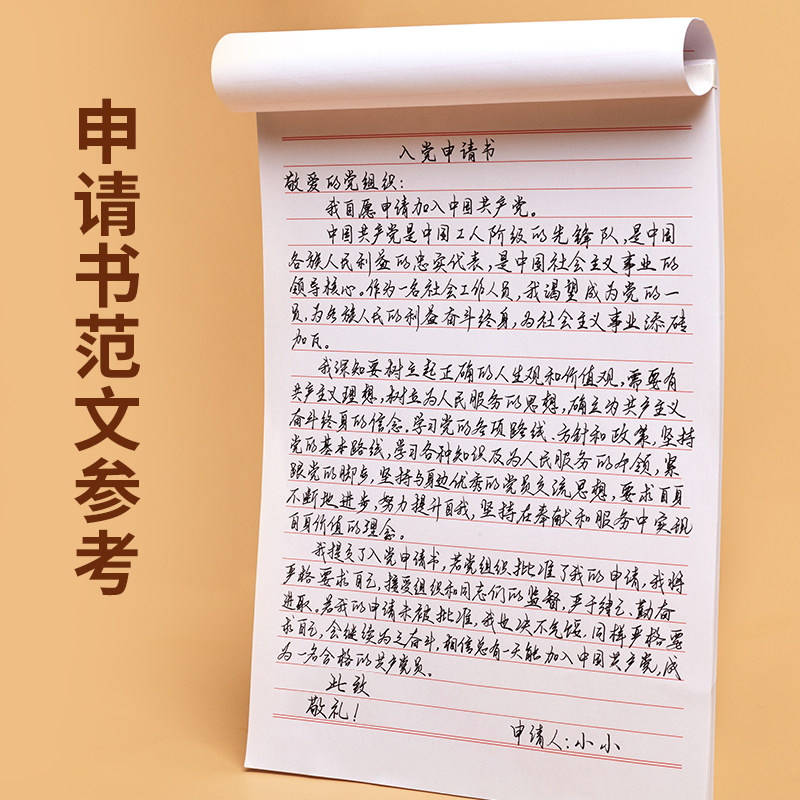 申请书范文参考
入党申请书
敬爱的党组织:
我自愿申请加入中国共产党。
中国共产党是中国工人阶级的先锋队,是中国
各族人民利益的忠实代表,是中国社会主义事业的
领导核心。作为一名社会工作人员,我渴望成为党的一
员,为各族人民的利益奋斗终身,为社会主义事业添砖
加瓦。
我深知要树立起正确的人生观和价值观,需要有
共产主义理想,树立为人民服务的思想,确立为共产主义
奋斗终身的信念。学习党的各项路线、方针和政策,坚持
党的基本路线,学习各种知识及为人民服务的本领,紧
跟党的脚步,坚持与身边优秀的党员交流思想,要求自身
不断地进步,努力提升自我,坚持在奉献和服务中实现
自身价值的理念。
我提交了入党申请书,若党组织批准了我的申请,我将
严格要求自己,接受组织和同志们的监督,严于律己,勤奋
进取。若我的申请未被批准,我也决不气馁,同样严格要
求自己,会继续为之奋斗,相信总有一天能加入中国共产党,成
为一名合格的共产党员。
此致
敬礼!
申请人:小小